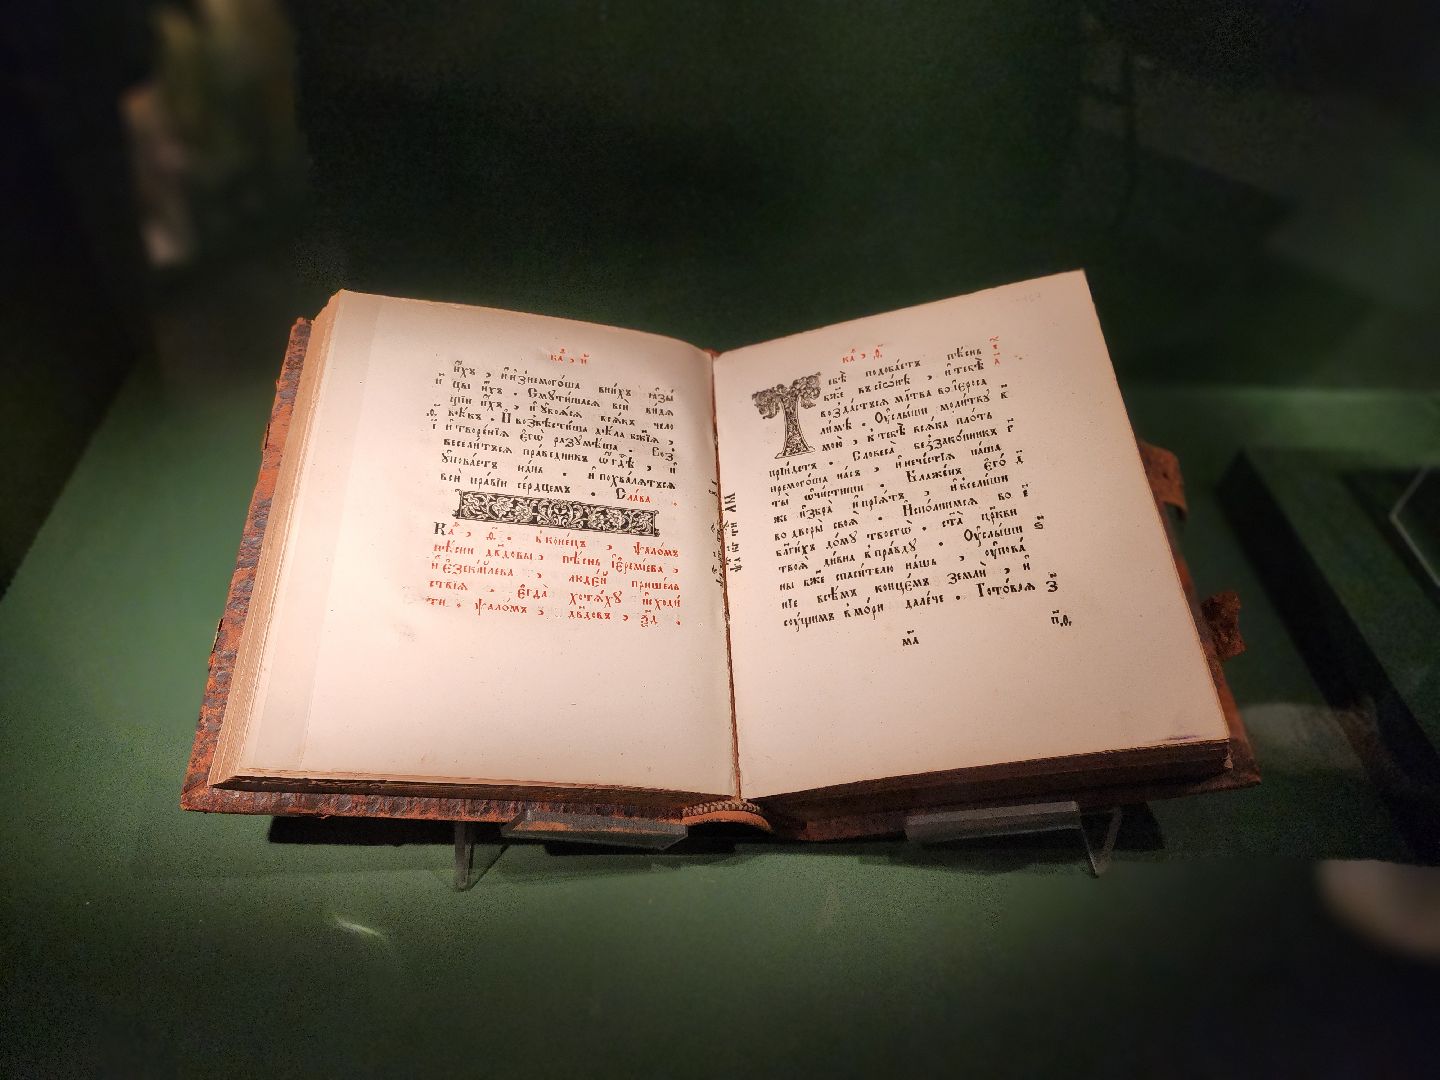 ка҃ , и҃
и҆́хъ , и҆ и҆з̾немого́ша внѝхъ ꙗ҆зы́
цы и҆́хъ . Смути́шасѧ всѝ ви́дѧ
щіи и҆́хъ , и҆ ᲂу҆боѧ́сѧ всѧ́къ чело
вѣ́къ . И҆ возвѣсти́ша дѣла̀ бж҃їѧ ,
и҆ творе́нїѧ є҆гѡ̀ разумѣ́ша . Воз̾
весели́тъсѧ пра́ведникъ ѡ҆ гдѣ҇ , и҆
ᲂу҆пова́етъ на́нь . и҆ похва́лѧтъсѧ
всѝ пра́вїи се́рдцемъ . Сла́ва .
Ка҃ , д҃ . в коне́цъ , ѱало́мъ
пѣ́сни дв҃довы , пѣ́снь і҆еремі́ева ,
и҆ є҆зекі́илева , люде́й прише́лѧ
ствїѧ . є҆гда̀ хотѧ́ху и҆сходи́
ти . ѱало́мъ , дв҃довъ , ѯ҃д .
ка҃ , д҃
Тебѣ̀ подоба́етъ пѣ́снь
бж҃е въ сїѡ́нѣ , и҆ тебѣ̀
возда́стъсѧ мл҃тва во і҆еръса
ли́мѣ . Оу҆слы́ши моли́тву
мою̀ , к тебѣ̀ всѧ́ка пло́ть
прїи́детъ . Словеса̀ беззако́нникъ
премого́ша на́съ , и҆ нече́стїѧ на́ша
ты̀ ѡ҆чи́стиши . Блаже́нъ є҆го́
же и҆збра̀ и҆ прїѧ́тъ , и҆ всели́ши
во дворы̀ своѧ̀ . И҆спо́лнимсѧ во
бл҃ги́хъ до́му твоегѡ̀ . ст҃а̀ цр҃кви
твоѧ̀ ди́вна в пра́вду . Оу҆слы́ши
ны̀ бж҃е спаси́телю на́шь , ᲂу҆пова́
нїе всѣ́мъ конце́мъ землѝ , и҆
су́щимъ в мо́ри дале́че . Гото́ваѧ
п҃ѳ.
м҃а